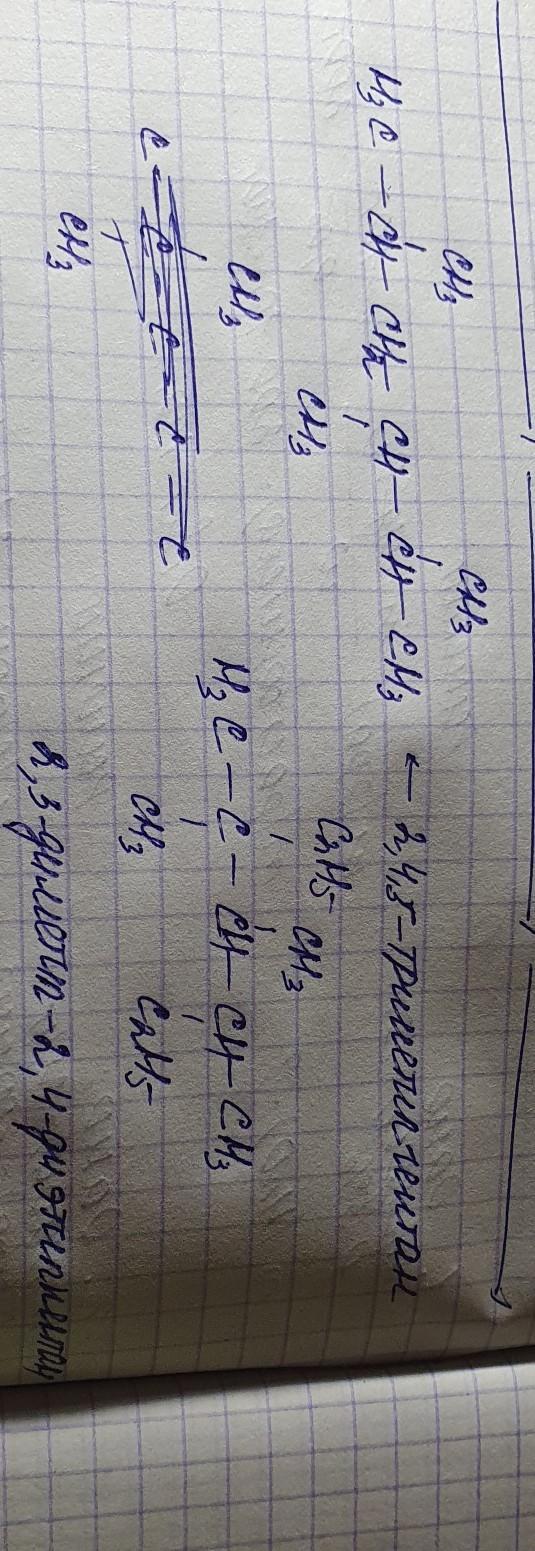 CH3 CH3
H3C – CH – CH2 – CH – CH – CH3 ← 2,4,5-триметилгептан
CH3 C2H5 CH3
CH3 H3C – C – CH – CH – CH3
C – C – C – C – C CH3 C2H5
CH3
2,3-диметил-2,4-диэтилпентан